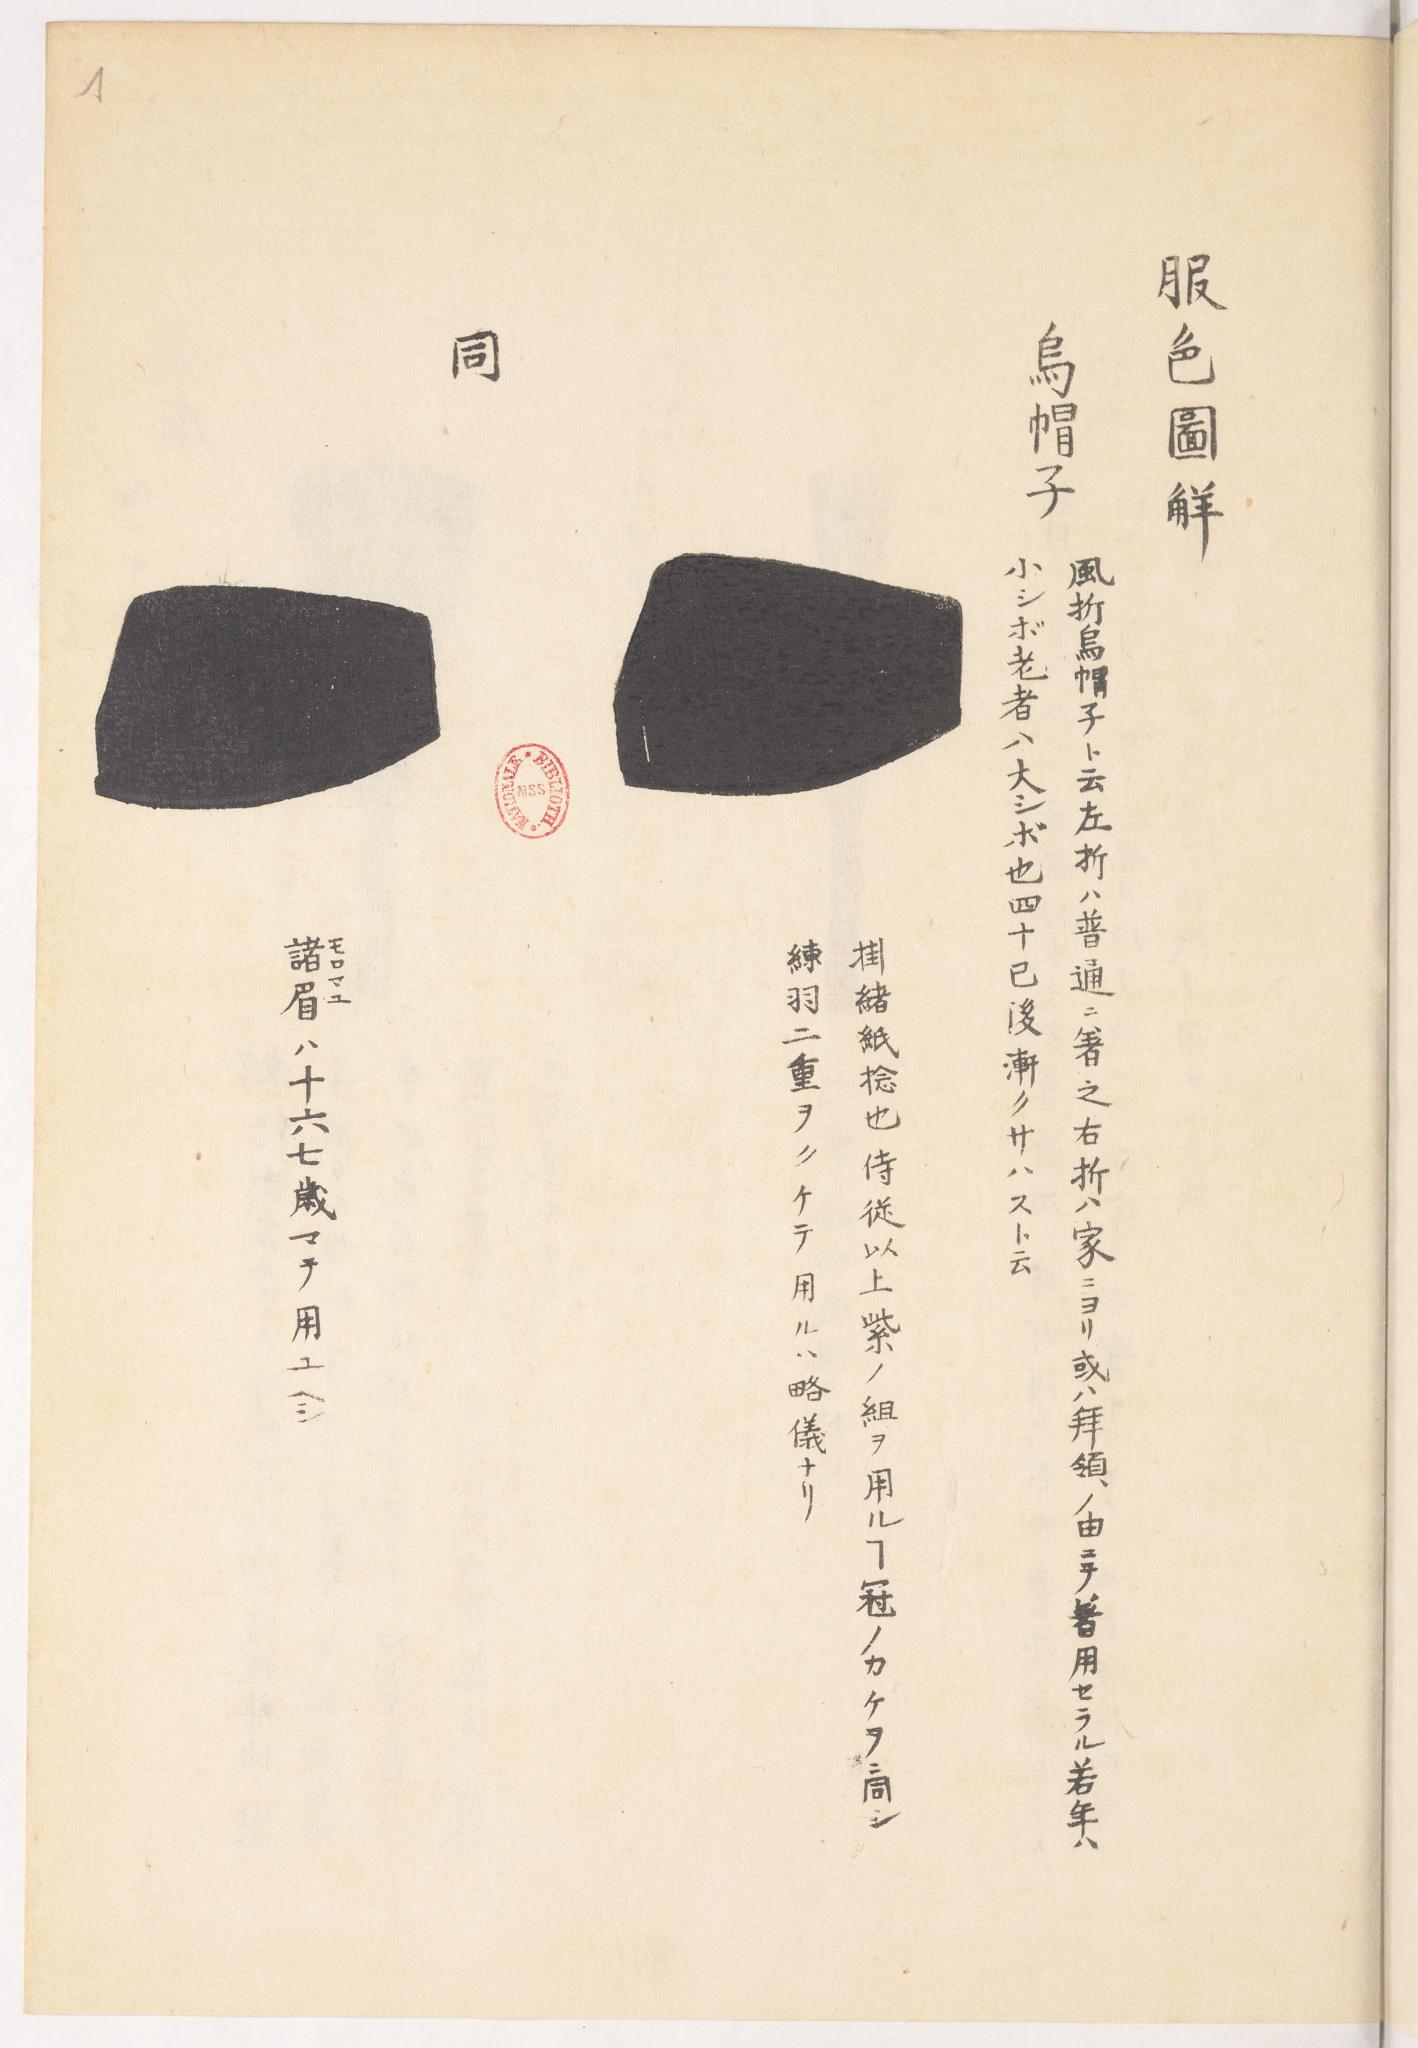 服色圖解
烏帽子
風折烏帽子ト云左折ハ普通ニ著之右折ハ家ニヨリ或ハ拜領ノ由ニテ著用セラル若年ハ
小シボ老者ハ大シボ也四十已後漸クサハスト云
掛緒紙捻也侍従以上紫ノ組ヲ用ルヿ冠ノカケヲニ同シ
練羽二重ヲクケテ用ルハ略儀ナリ
同
諸眉ハ十六七歳マテ用ユヘシ
モロマユ
BIBLIOTH. NATIONALE
MSS
1